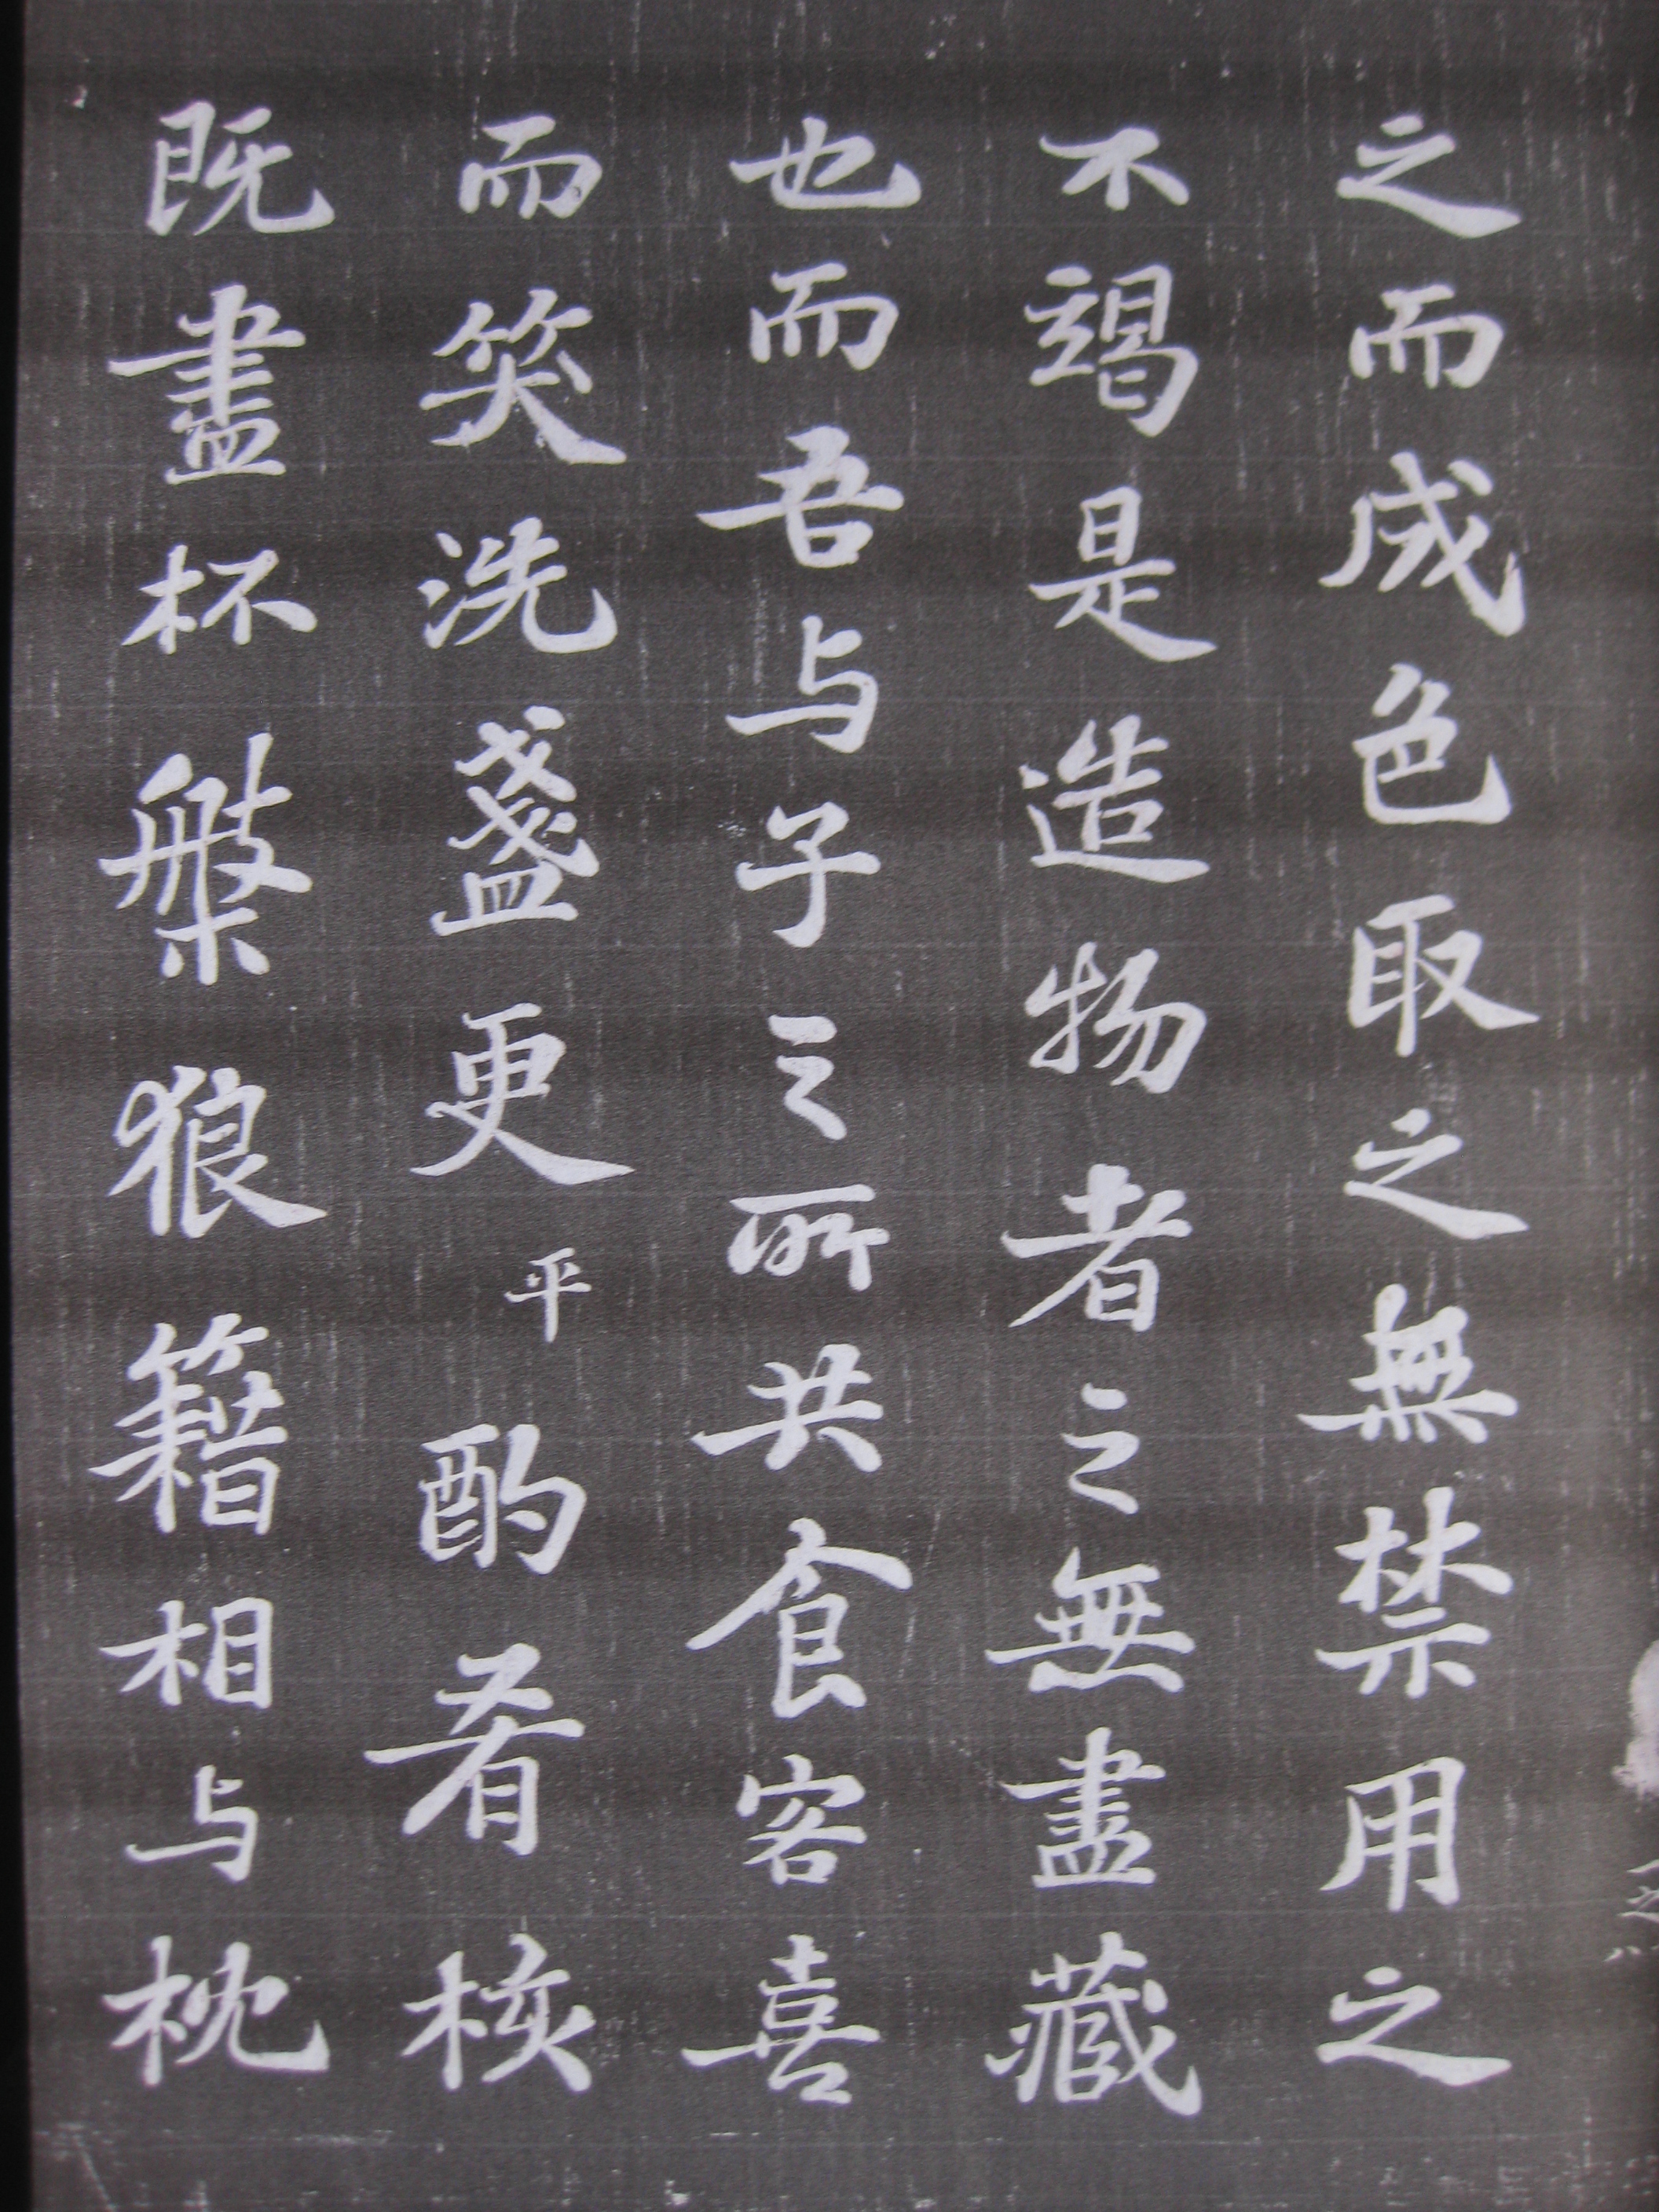 之而成色取之無禁用之
不竭是造物者之無盡藏
也而吾与子之所共食客喜
而笑洗盏更平酌肴核
既盡杯槃狼籍相与枕